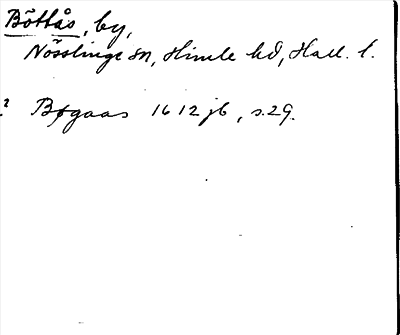 Böttås, by,
Nösslinge sn, Himle hd, Hall. l.
? Bøgaas 1612 jb, s.29.